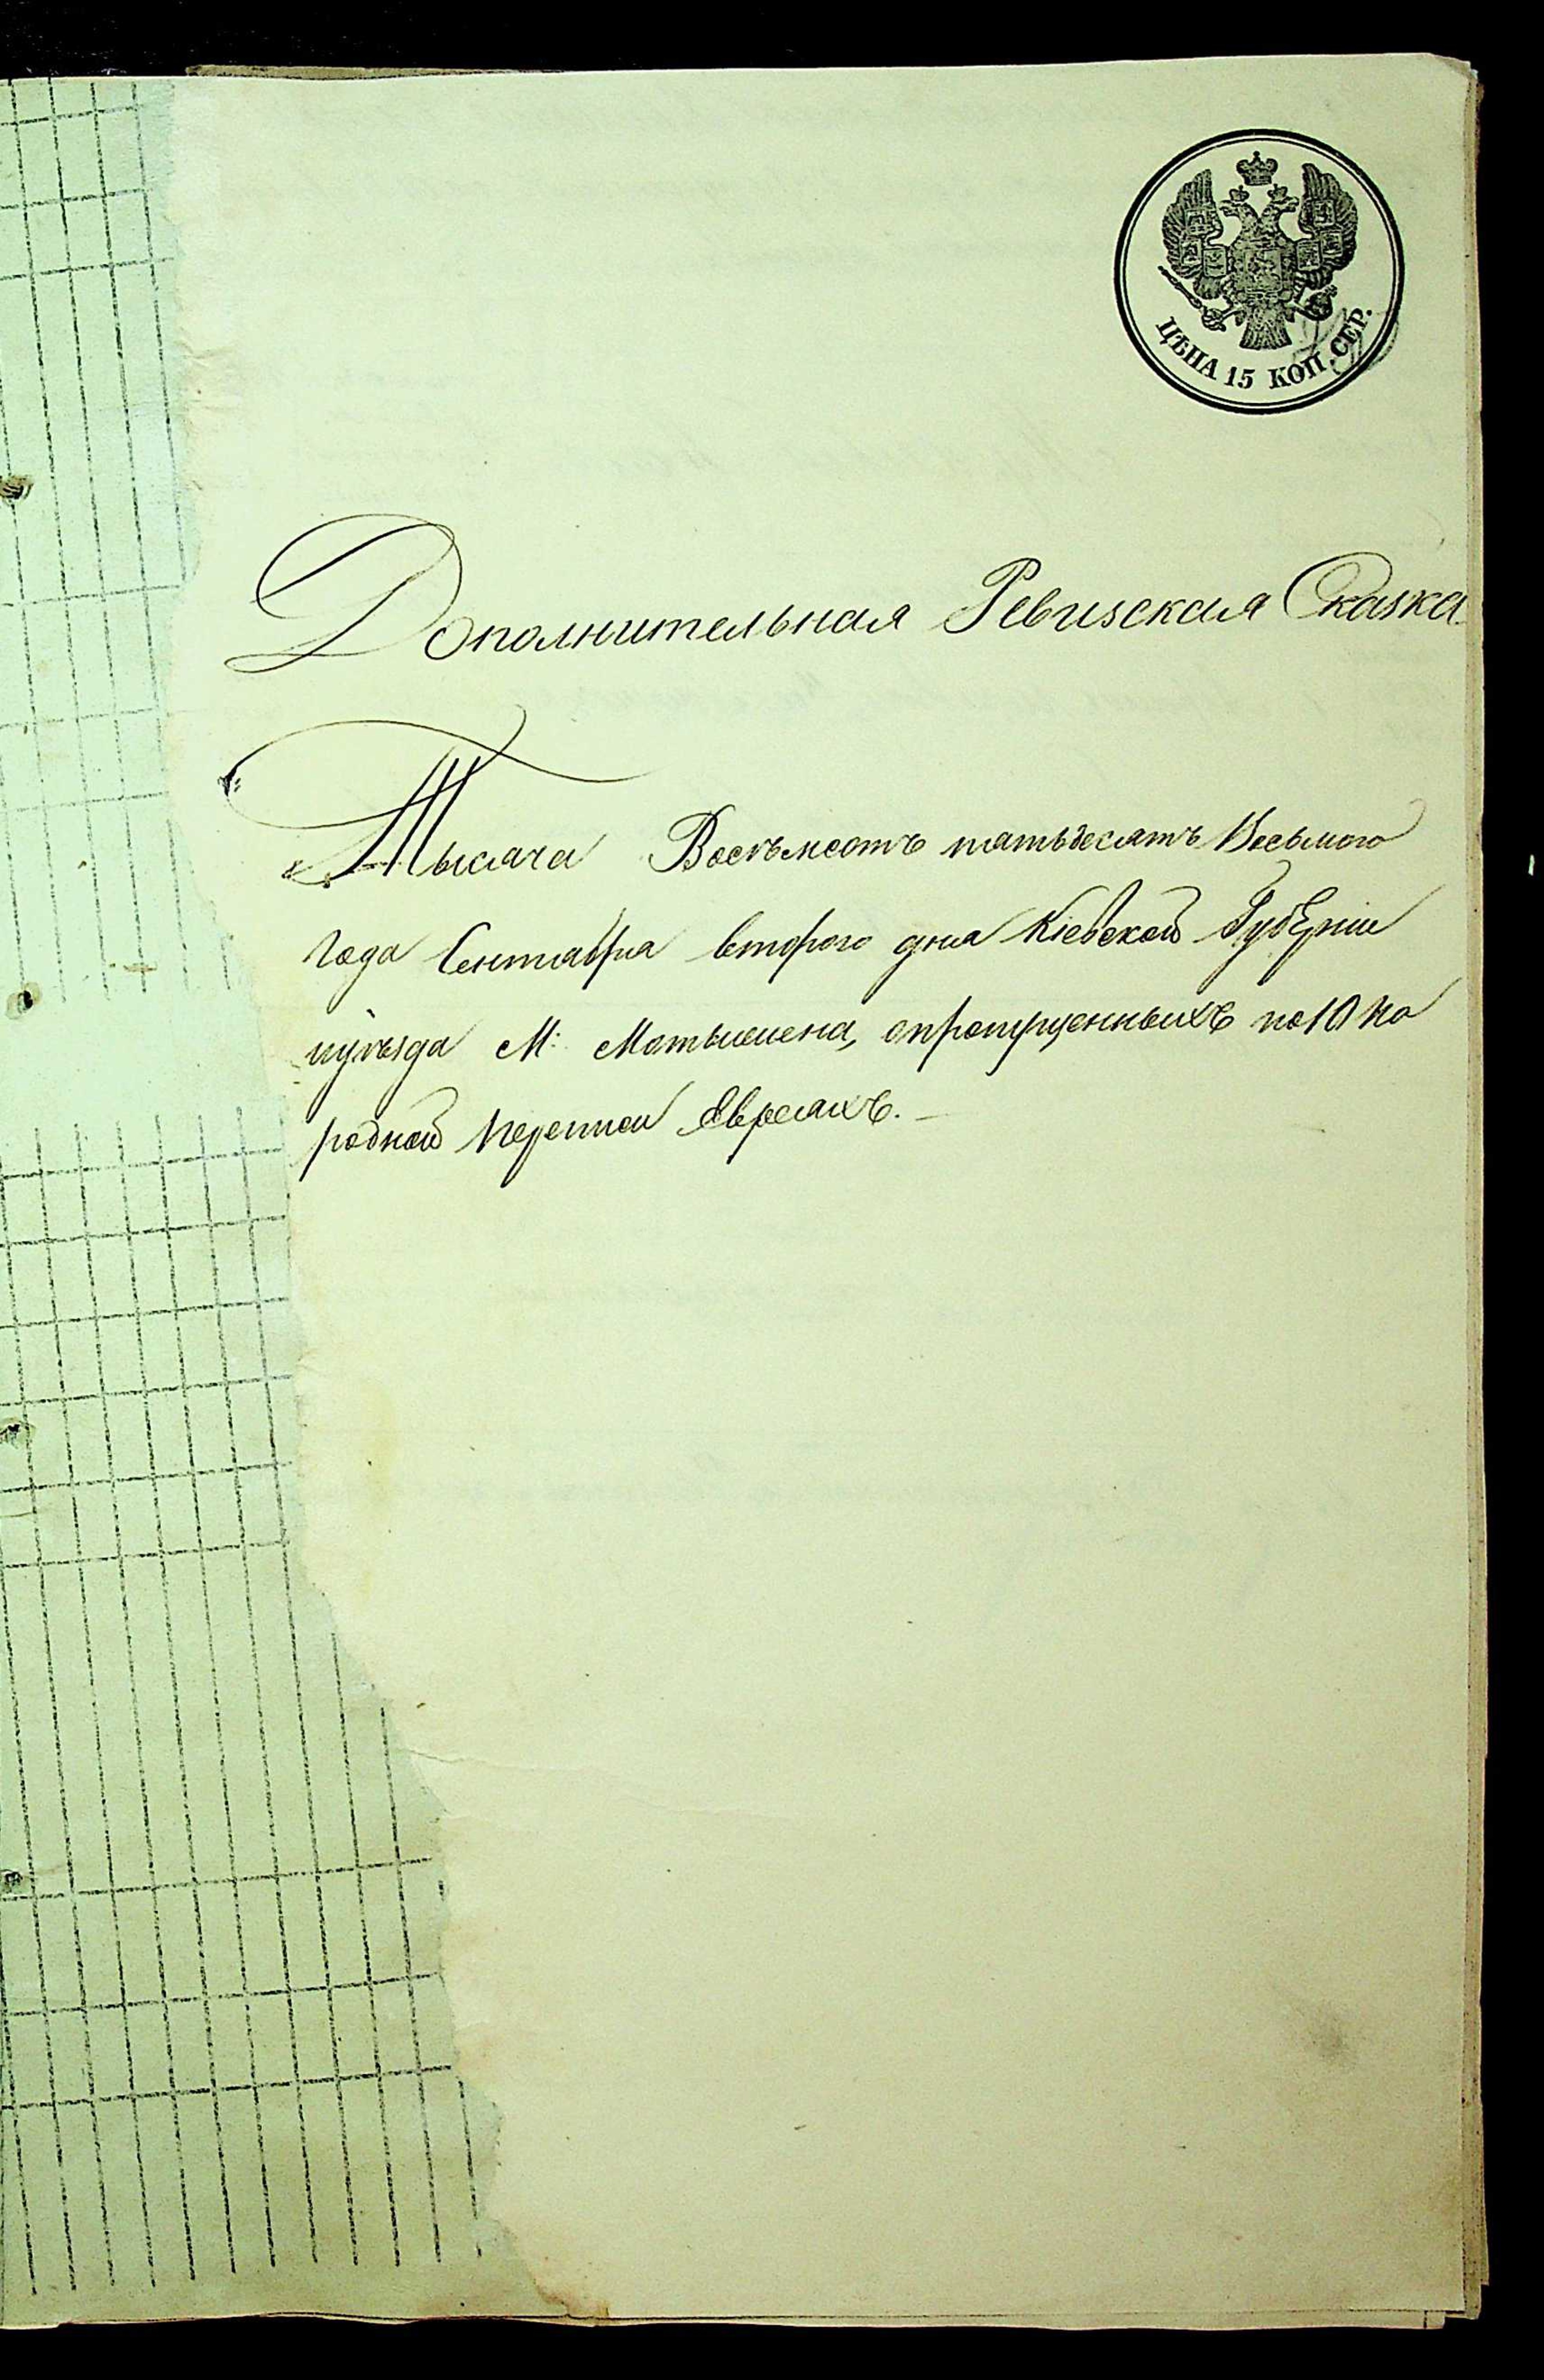 ЦѢНА 15 КОП. СЕР.
Дополнительная Ревизская Сказка
Тысяча Восемьсотъ пятьдесятъ Восьмого
года Сентября второго дня Кіевской Губерніи
уѣзда М:
о пропущенныхъ по 10 На
родной переписи Евреяхъ.